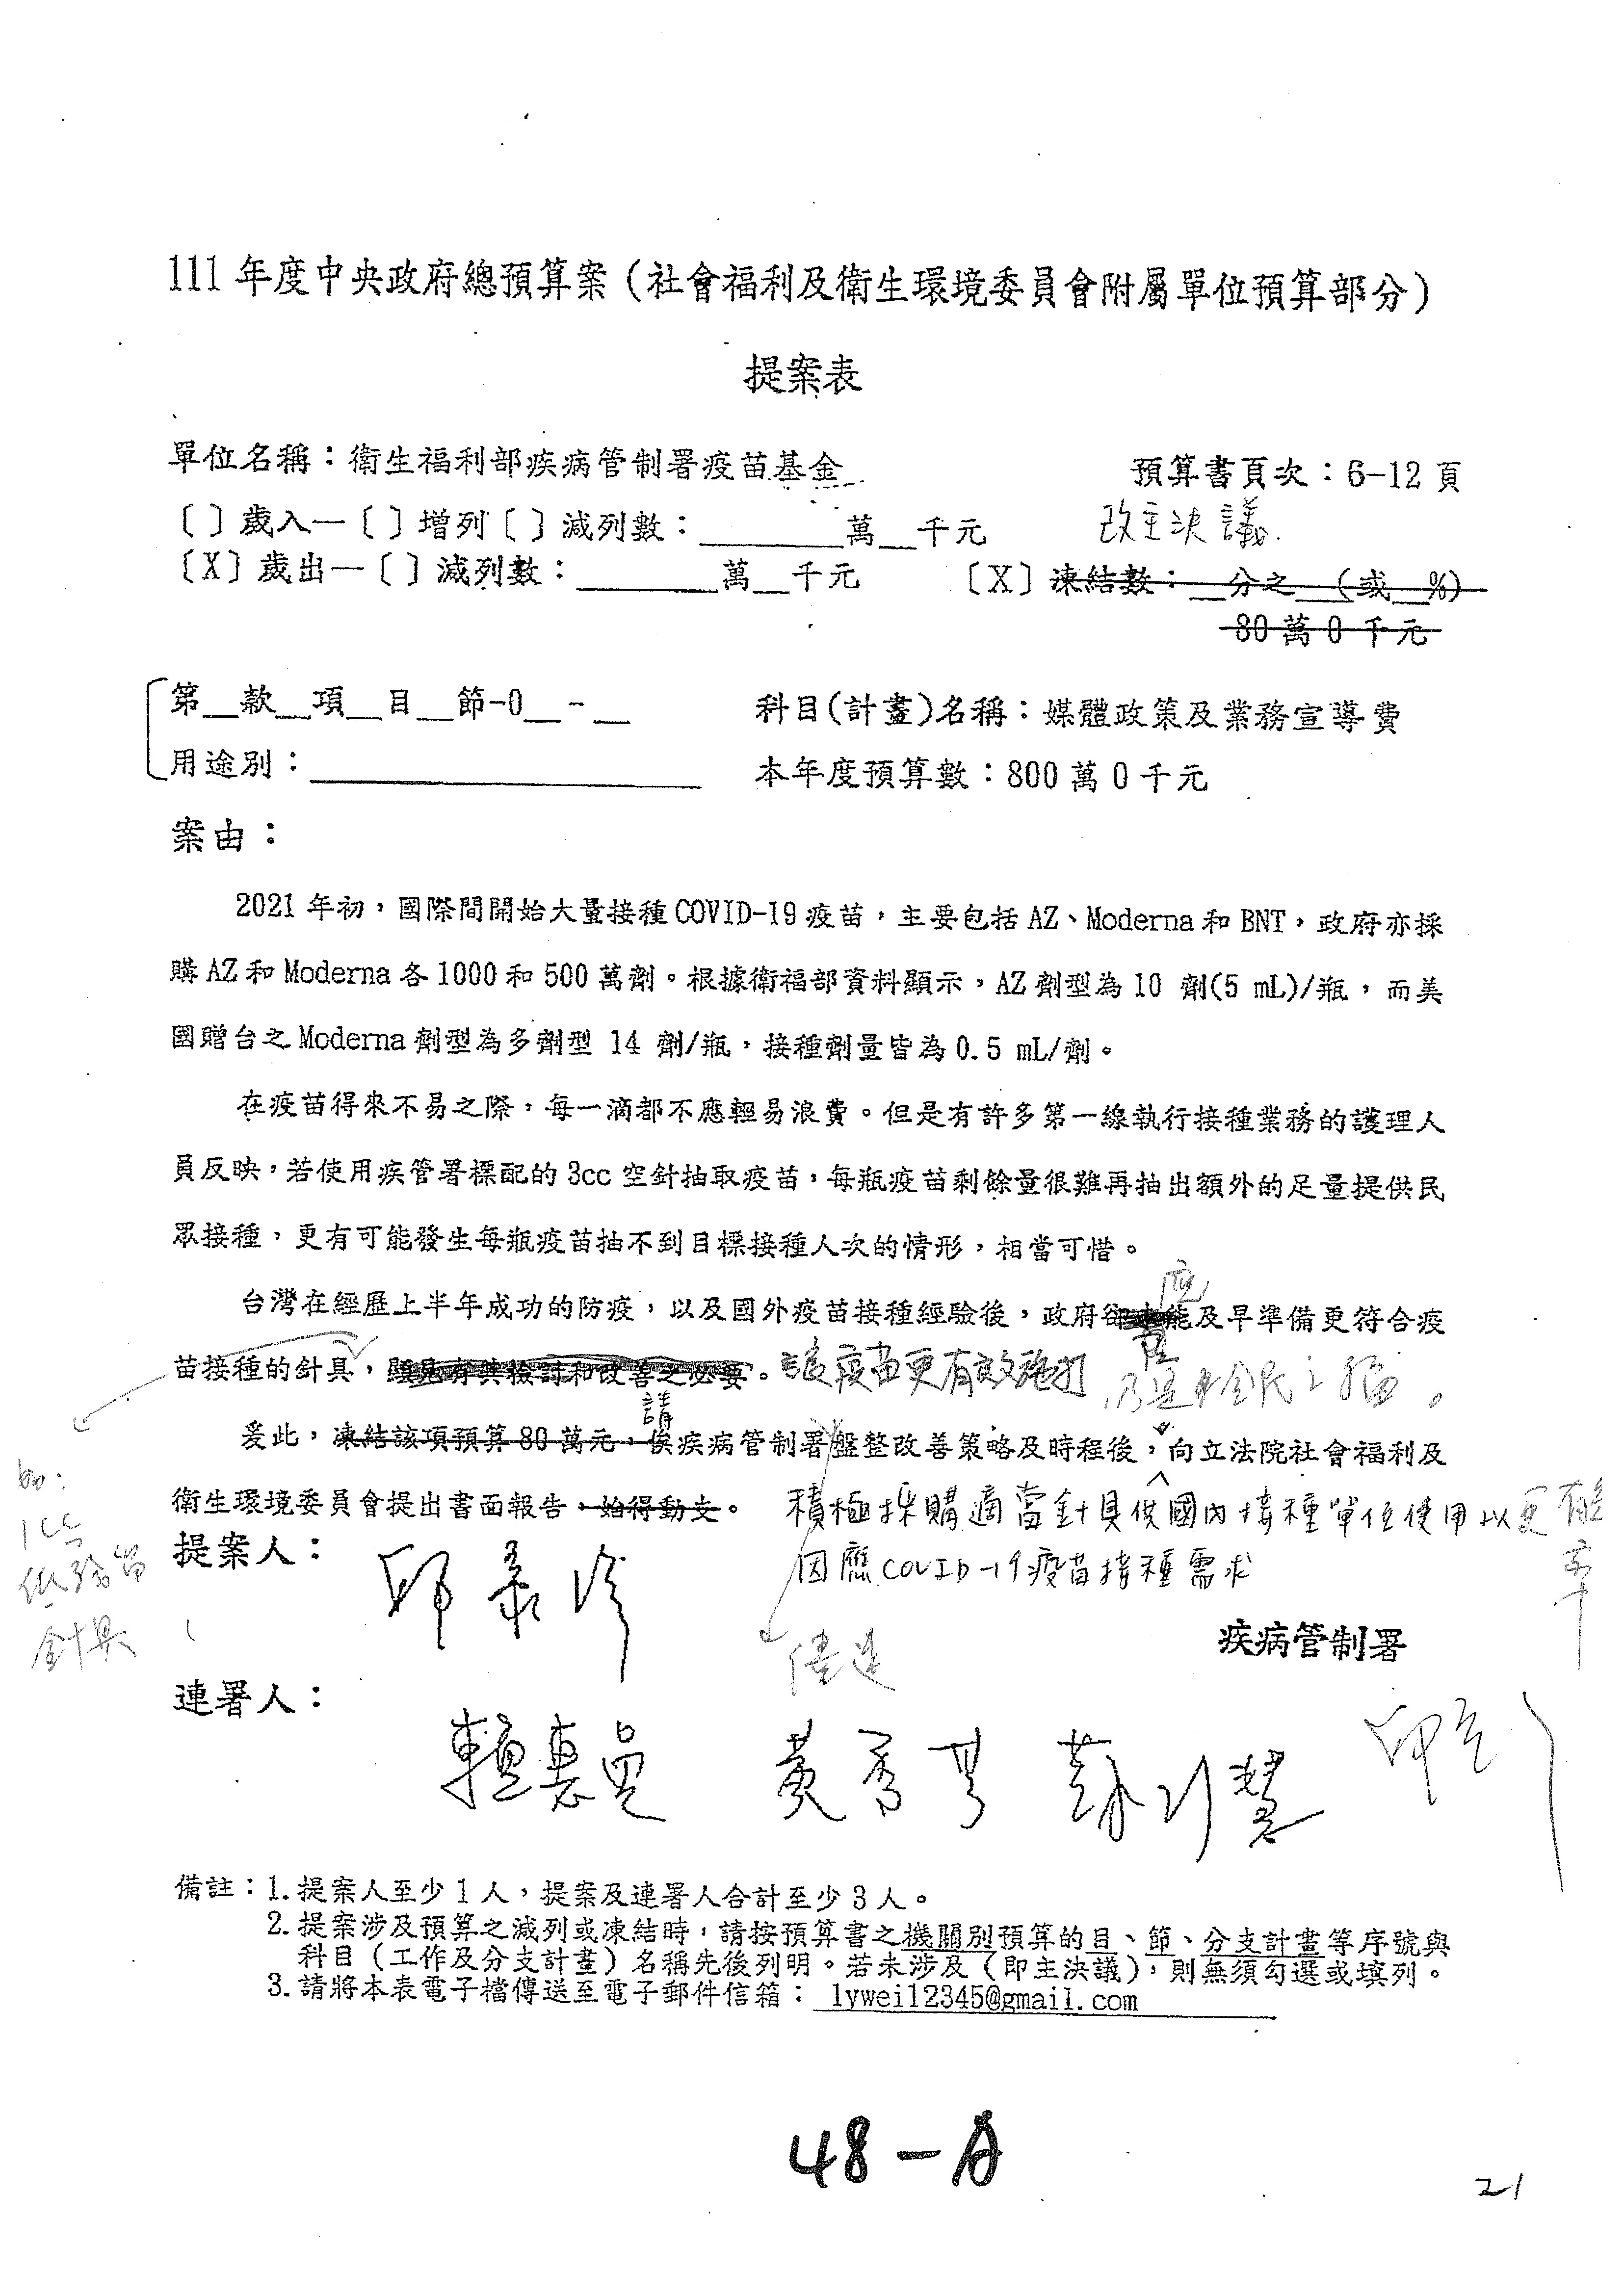 111 年度中央政府總預算案（社會福利及衛生環境委員會附屬單位預算部分）
提案表
單位名稱：衛生福利部疾病管制署疫苗基金
預算書頁次：6-12 頁
〔 〕歲入—〔 〕增列〔 〕減列數：________萬__千元
改主決議.
〔X〕歲出—〔 〕減列數：________萬__千元
〔X〕凍結數：__分之__（或__%）
80 萬 0 千元
第__款__項__目__節-0__-__
科目(計畫)名稱：媒體政策及業務宣導費
用途別：____________
本年度預算數：800 萬 0 千元
案由：
2021 年初，國際間開始大量接種 COVID-19 疫苗，主要包括 AZ、Moderna 和 BNT，政府亦採
購 AZ 和 Moderna 各 1000 和 500 萬劑。根據衛福部資料顯示，AZ 劑型為 10 劑(5 mL)/瓶，而美
國贈台之 Moderna 劑型為多劑型 14 劑/瓶，接種劑量皆為 0.5 mL/劑。
在疫苗得來不易之際，每一滴都不應輕易浪費。但是有許多第一線執行接種業務的護理人
員反映，若使用疾管署標配的 3cc 空針抽取疫苗，每瓶疫苗剩餘量很難再抽出額外的足量提供民
眾接種，更有可能發生每瓶疫苗抽不到目標接種人次的情形，相當可惜。
應
台灣在經歷上半年成功的防疫，以及國外疫苗接種經驗後，政府卻未能及早準備更符合疫
苗接種的針具，顯見有其檢討和改善之必要。讓疫苗更有效施打 乃是全民之福。
請
爰此，凍結該項預算 80 萬元，俟疾病管制署盤整改善策略及時程後，向立法院社會福利及
衛生環境委員會提出書面報告，始得動支。
積極採購適當針具供國內接種單位使用以更有效率
因應 COVID-19 疫苗接種需求
如：
1cc
低殘留
針具
儘速
提案人：
邱泰源
疾病管制署
連署人：
賴惠員 黃秀芳 蘇巧慧
備註：1. 提案人至少 1 人，提案及連署人合計至少 3 人。
2. 提案涉及預算之減列或凍結時，請按預算書之機關別預算的目、節、分支計畫等序號與
科目（工作及分支計畫）名稱先後列明。若未涉及（即主決議），則無須勾選或填列。
3. 請將本表電子檔傳送至電子郵件信箱：lywei12345@gmail.com
48-A
21